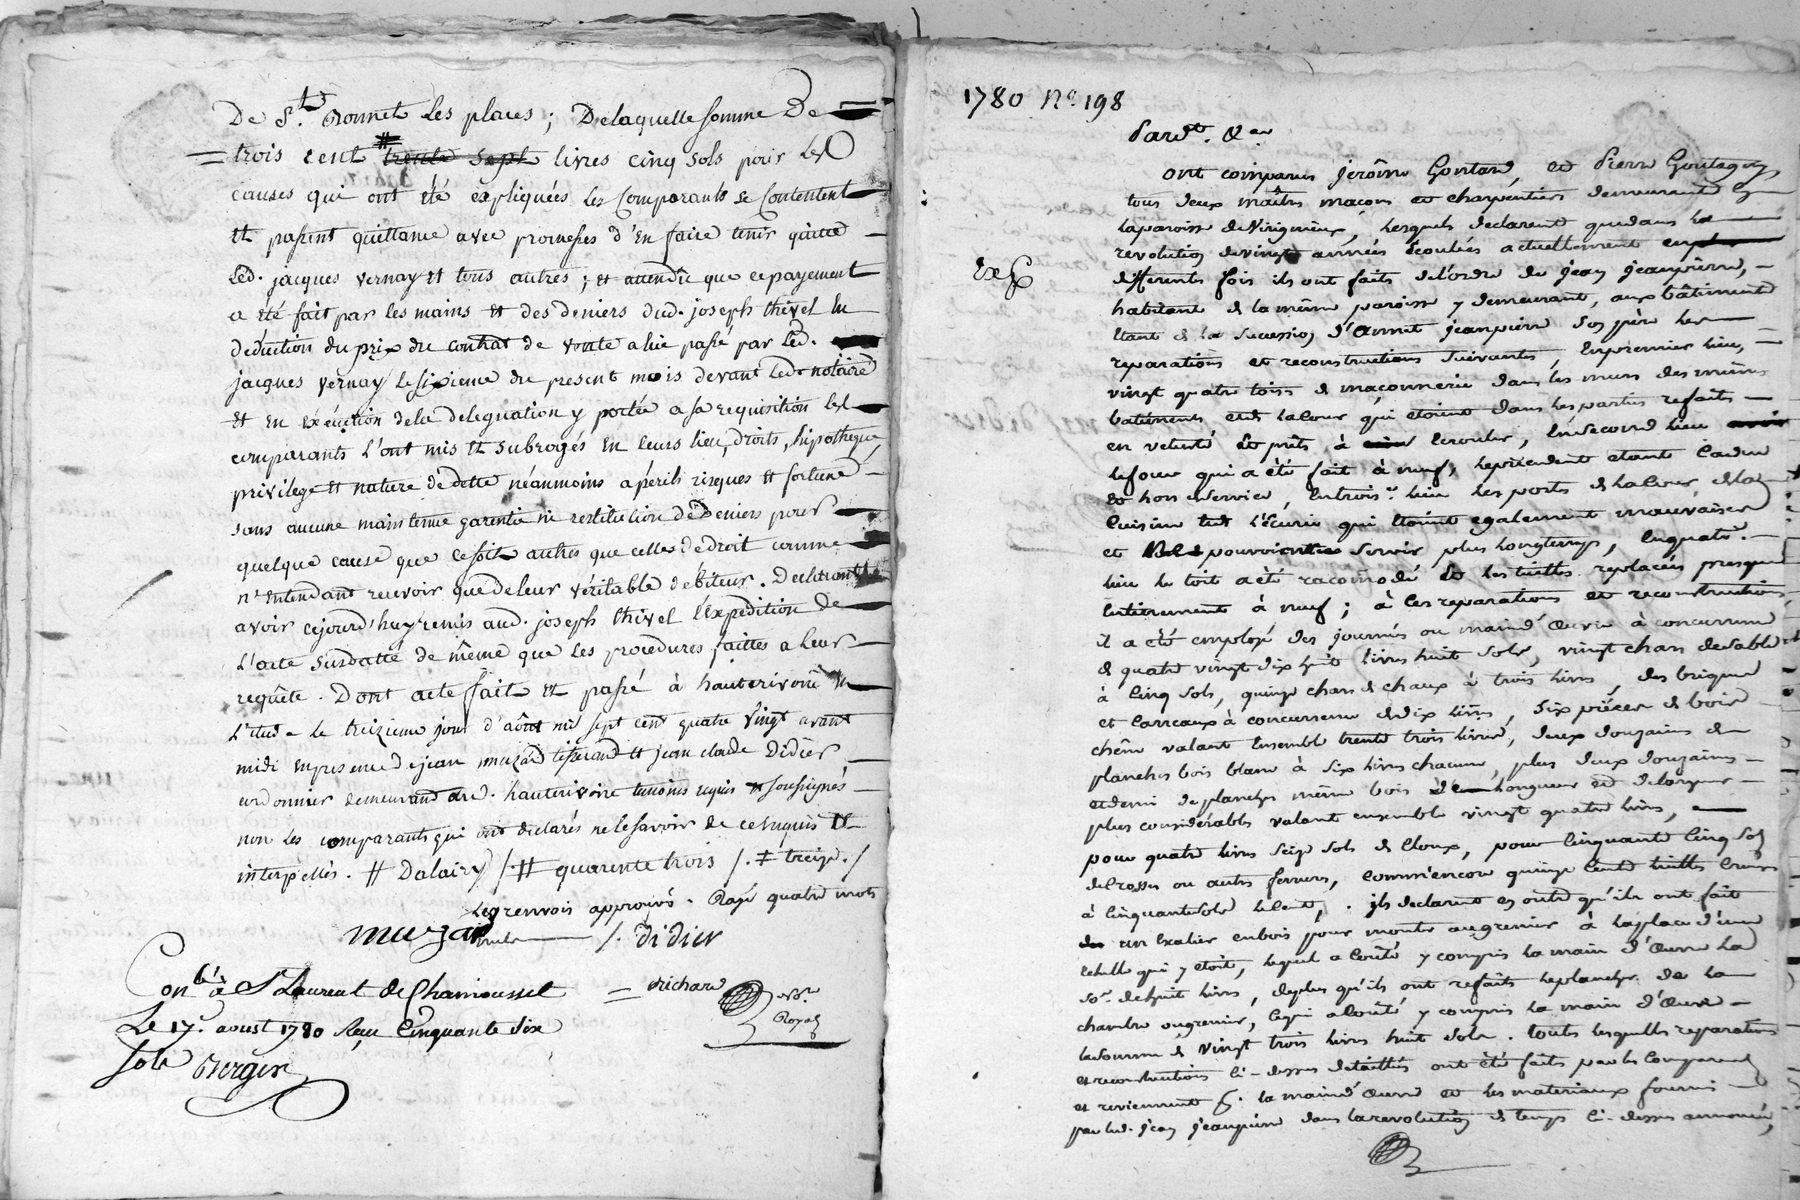 De S.t Bonnet les places; De laquelle somme De
trois cent # trente sept livres cinq sols pour les
causes qui ont été expliquées les Comparants se Contentent
et passent quittance avec promesses d'En faire tenir quitte
led. jacques vernay et tous autres; et attendu que ce payement
a été fait par les mains et des deniers dud. joseph thivel En
déduction du prix du contrat de vente a lui passé par led.
jacques vernay le sixieme du present mois devant led. notaire
et en exécution de la delegnation y portée a sa requisition les
comparants l'ont mis et subrogés En leurs lieu, droits, hipotheque,
privilege et nature de dette néanmoins a périls risques et fortune
sans aucune maintenue garentie ni restitution de Deniers pour
quelque cause que ce soit autres que celles de droit comme
n'entendant recevoir que de leur véritable débiteur. Declarant
avoir cejourd'huy remis aud. joseph thivel l'Expedition de
l'acte susdatté de même que les procedures faittes a leur
requête. Dont acte fait et passé à hauterivoire En
l'Etude le treizieme jour d'août mil sept cent quatre vingt avant
midi en presence de jean muzard tisserand et jean claude Didier
cordonnier demeurand aud. hauterivoire temoins requis et soussignés
non les comparants qui ont declarés ne le savoir de ce requis et
interpellés. # Dalairy /. # quarente trois /. ‡ treize. /
les renvois approuvés. Rayé quatre mots
muzard nuls /. didier
Con.lé à St Laurent de Chamousset = richard
Le 17. aoust 1780 Reçu Cinquante six no.re Royal
sols Berger
1780 N.o 198
Pard.t &.a
ont comparus jerôme Gontard, et Pierre
tous deux maîtres maçons et charpentiers demeurants en
la paroisse de Virigneux, lesquels declarent que dans la
revolution de vingt années écoulées actuellement en
Exp.
differents fois ils ont faits de l'ordre de jean jeanpierre,
habitant de la même paroisse y demeurant, aux bâtiments
étant de la succession d'annet jeanpierre son père les
reparations et reconstructions suivantes, En premier lieu,
vingt quatre toises de maçonnerie dans les murs des mêmes
batiments et de la cour qui etoient dans les parties refaits
en vetusté et prêts à ecrouler, En second lieu
le four qui a été fait à neuf, le précedent etant caduc
et hors de service, En trois.e lieu les portes de la cour de la
cuisine et de l'écurie qui etoient egalement mauvaises
et ne pouvoient servir plus longtemps, En quatr.
lieu le toit a été racomodé et les tuilles replacées presque
entierement à neuf; à ces reparations et reconstructions
il a été employé des journées ou main d'œuvre à concurrence
de quatre vingt dix huit livres huit sols, vingt chars de sable
à cinq sols, quinze chars de chaux à trois livres, des briques
et carreaux à concurrence de dix livres, six pièces de bois
chêne valant Ensemble trente trois livres, deux douzaines de
planches bois blanc à six livres chacune, plus deux douzaines
et demi de planches même bois de longueur et de largeur
plus considérables valant ensemble vingt quatre livres,
pour quatre livres seize sols de cloux, pour cinquante cinq sols
de crosses ou autres ferrures, comm'encore quinze cents tuilles creuses
à cinquante sols le cent, . ils declarent en outre qu'ils ont fait
un escalier en bois pour monter au grenier à la place d'une
echelle qui y etoit, lequel a coûté y compris la main d'œuvre la
so.e de huit livres, de plus qu'ils ont refaits le plancher de la
chambre ou grenier, ce qui a coûté y compris la main d'œuvre
la somme de vingt trois livres huit sols. toutes lesquelles reparations
et reconstructions ci-dessus detaillées ont été faits par les comparants
et reviennent p. la main d'œuvre et les materiaux fournis
par led. jean jeanpierre dans la revolution de temps ci-dessus annoncée,